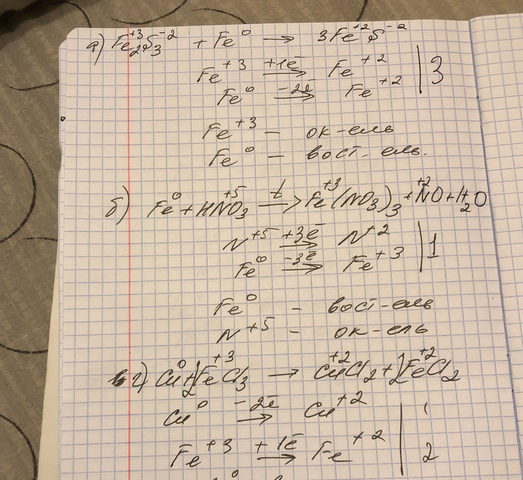 а) Fe₂⁺³S₃⁻² + Fe⁰ → 3Fe⁺²S⁻²
Fe⁺³ +1ē→ Fe⁺² | 3
Fe⁰ −2ē→ Fe⁺²
Fe⁺³ – ок-ель
Fe⁰ – вост-ель.
б) Fe⁰ + HN⁺⁵O₃ t→ Fe⁺³(NO₃)₃ + N⁺²O + H₂O
N⁺⁵ +3ē→ N⁺² | 1
Fe⁰ −3ē→ Fe⁺³
Fe⁰ – вост-ель
N⁺⁵ – ок-ель
г) Cu⁰ + 2Fe⁺³Cl₃ → Cu⁺²Cl₂ + 2Fe⁺²Cl₂
Cu⁰ −2ē→ Cu⁺² | 1
Fe⁺³ +1ē→ Fe⁺² | 2